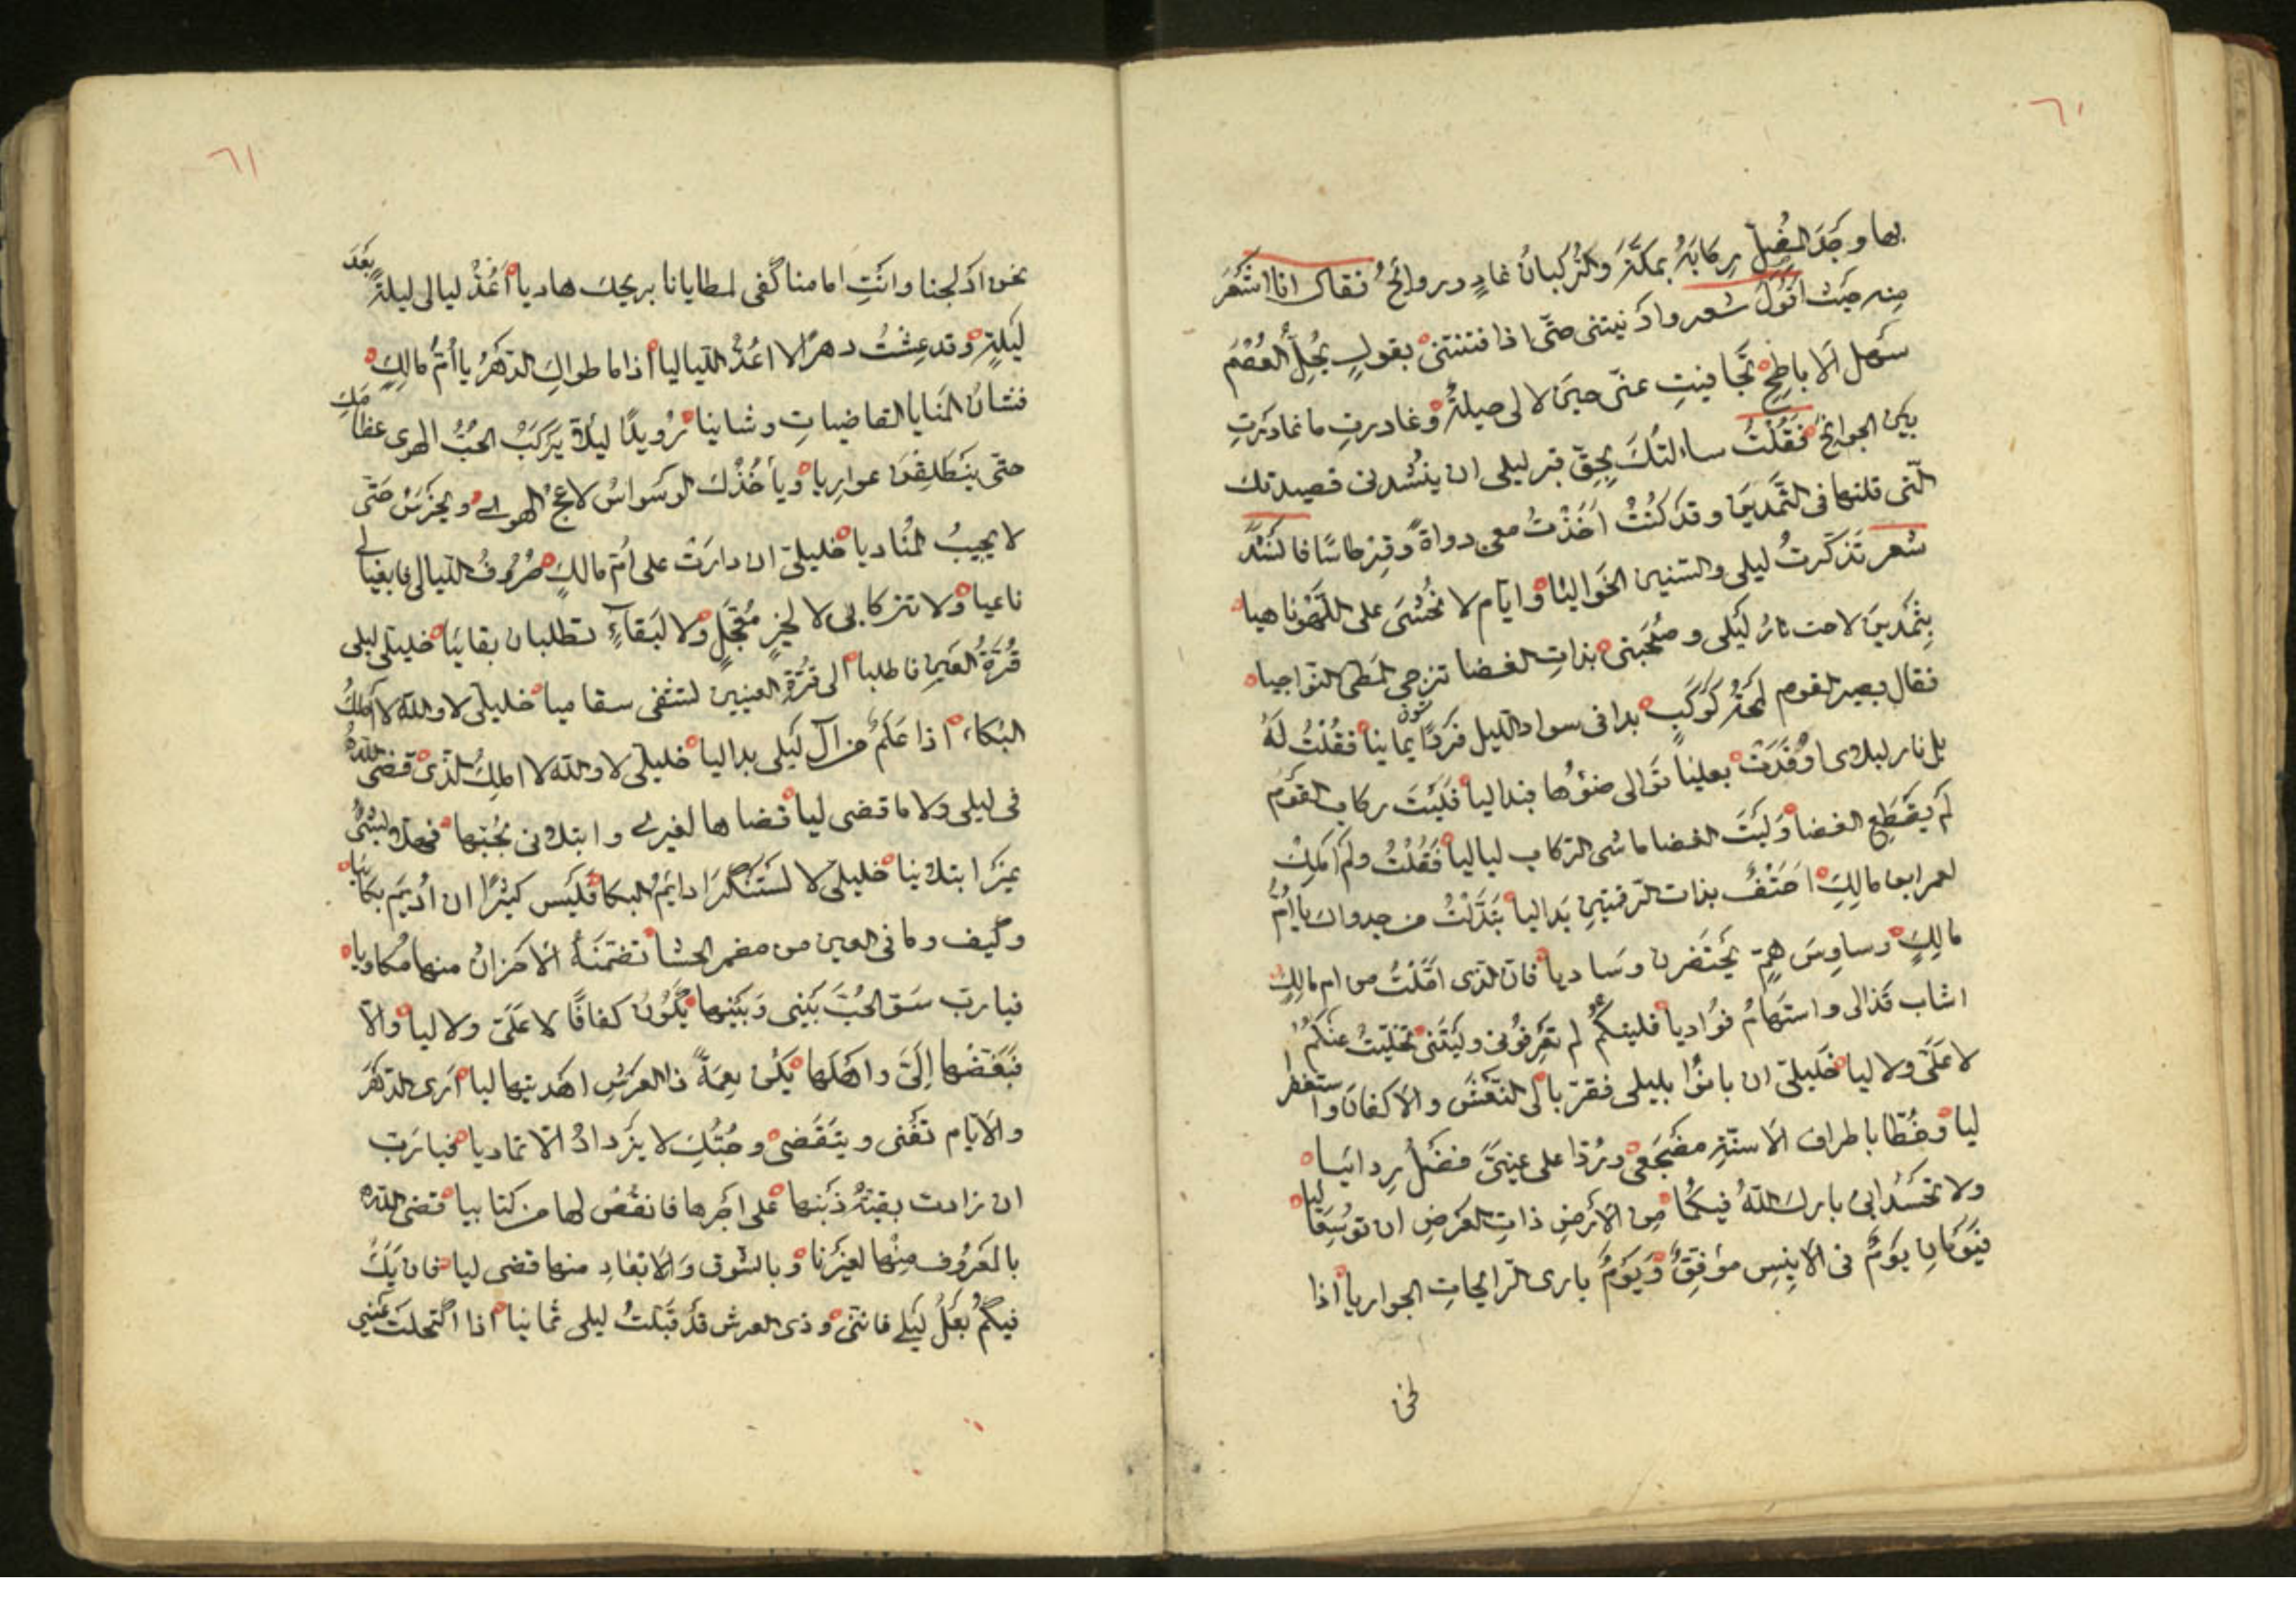 ٦٠
بها وجَدَ المُضِلّ رِكابَهُ بمكّةَ والرُكبانُ غادٍ ورروائحُ فقال انا اشعَرُ
مِنه حيَث اقولُ شعر وادنيتنى حتّى اذا فتنتنى بقولٍ يُحِلّ العُصْمَ
سَهل الاباطِحِ تجافيتِ عنّى حينَ لا لى حيلةٌ وغادرتِ ما غادَرتِ
بين الجوانحِ فقُلْتُ ساءلتُكَ بِحقّ قبر ليلى ان ينشدنى قصيدتك
الّتى قلتها فى الثَّمَدينَ وقد كنْتُ اَخَذْتُ معى دواةً وقِرطاسًا فانشَدَ
شعر تَذكّرتُ ليلى والسّنين الخَواليا وايّام لا نخشى على اللّهْو ناهيا
بِثمَدينَ لاحت نارُ لَيلى وصُحْبَتى بذاتِ الغضا تزجى المَطىّ النّواجيا
فقال بصير القوم اَلمحْتُ كَوكَبٍ بدا فى سواد اللّيل فَردًا يمانيا فقُلْتُ لَهُ
بل نار ليلى اوُقدَتْ بعليَا تَوالى ضوُها فبدا ليا فَلَيْتَ ركاب القَوم
لَم يقطعِ الغضا وَلَيتَ الغضا ماشى الرّكاب لياليا فَقُلْتُ ولَم اَملِكْ
لعمر ابن مالِكٍ اَحَتْفٌ بذات الرّقمتينِ بَدا ليا تبَدّلْتُ من جدواك يا اُمّ
مالِكٍ وساوِسَ همٍّ يحْتضرن وسَاديا فانّ الّذى امّلْتُ من ام مالِكٍ
اشاب قَذالى واستهامُ فوُاديا فليتكُم لم تَعرِفونى ولَيتَنى تخلّيتُ عنكُم
لا علَىّ ولا ليا خَليلىّ ان بانوُا بليلى فقرّبا لى النّعْشَ والاكفانَ واستغفرا
ليا وخُطّا باطراف الاَسنّةِ مضْجَعى ورُدّا على عينىّ فضْلَ رِدائيا
ولا تحْسُدانى باركَ اللّهُ فيكُما مِن الاَرْضِ ذاتِ العَرضِ ان توُسِعَا ليا
فيَوَمانِ يَومٌ فى الاَنِيسِ مؤنقٌ وَيَومٌ بارى الرّائحاتِ الجواريا اذا
نحن
٦١
نحن ادْلجنا وانْتِ امامنا كَفى لمطايانا بريحك هاديا اَعُدّ ليالى ليلةً بَعدَ
لَيلةٍ وقد عِشْتُ دهرًا لا اعُدّ اللّياليا اذا ما طواكِ الدّهرُ يا اُمّ مالِكٍ
فشانُ المَنايا القاضياتِ وشانيا رُويدًا ليلاّ يَركَبْ الحُبُّ الهوى عظامَكِ
حتّى يَنطَلِقنَ عوارِيا ويأخُذْكَ الوَسواسُ لاعجُ الهوى ويخرَسْ حَتّى
لا يجيبُ المُناديا خليلىّ ان دارَتْ على اُمّ مالكٍ صُرُوفُ اللّيالى فابغيا لى
ناعيا ولا تتركانى لا لخيرٍ مُعَجّلٍ ولا لبَقاءٍ تطلبان بقايَيا خليلىّ ليلى
قُرّةُ العينِ فاطلبا الى قُرّةِ العينينِ لتشفى سقاميا خليلىّ لا واللّه لا اَملِكُ
البُكا اذا عَلَمٌ من آلِ لَيلى بدا ليا خليلىّ لا واللّه لا املكُ الّذى قضى اللّهُ
فى ليلى ولا ما قضى ليا قضاها لغيرى وابتلانى بحُبّها فهلّا بشئٍ
غيرَ ابتلانيا خليلىّ لا تستنكرَا دايَم البكا فلَيس كثيرًا ان اُديَم بكائيا
وكَيف وما فى العين من مضمر الحشا تضمّنهُ الاَحزانُ منها مكاويا
فيا ربّ سَوّ الحُبّ بَيْنى وَبَينها يَكُونُ كفافًا لا علَىّ ولا ليا والاّ
فبَغّضْها اِلىّ واهْلَها يَكُن نِعمةً ذا العَرشِ اهديتها ليا اَرى الدّهْرَ
والاَيام تَفْنى ويَنقَضى وحُبّكِ لا يَزدادُ الاّ تماديا فيا رَبّ
ان زادت بقيّهُ ذَنبها على اَجْرها فانقُصْ لها من كتابيا قضى اللّه
بالمَعْروُف مِنْها لغيْرنا وبالشّوق وَالابعَادِ منها قضى ليا فان يَكُ
فيكُم بَعلُ لَيلى فانّنى وذى العرش قد قَبّلتُ ليلى ثمانيا اذا اكتحلَتْ عَيْنى